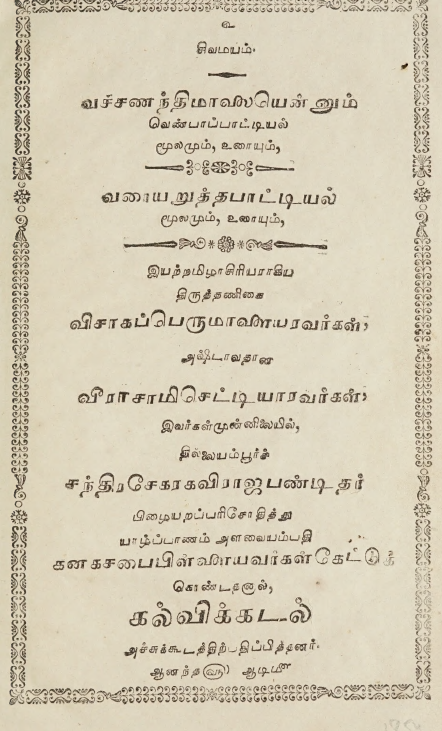 உ
சிவமயம்.
வச்சணந்திமாலையென்னும்
வெண்பாப்பாட்டியல்
மூலமும், உரையும்,
வரையறுத்தபாட்டியல்
மூலமும், உரையும்,
இயற்றமிழாசிரியராகிய
திருத்தணிகை
விசாகப்பெருமாளையரவர்கள்,
அஷ்டாவதான
வீராசாமிசெட்டியாரவர்கள்,
இவர்கள்முன்னிலையில்,
தில்லையம்பூர்ச்
சந்திரசேகரகவிராஜபண்டிதர்
பிழையறப்பரிசோதித்து
யாழ்ப்பாணம் அளவையம்பதி
கனகசபைபிள்ளையவர்கள்கேட்டுக்
கொண்டதனால்,
கல்விக்கடல்
அச்சுக்கூடத்திற்பதிப்பித்தனர்.
ஆனந்த௵ ஆடி௴